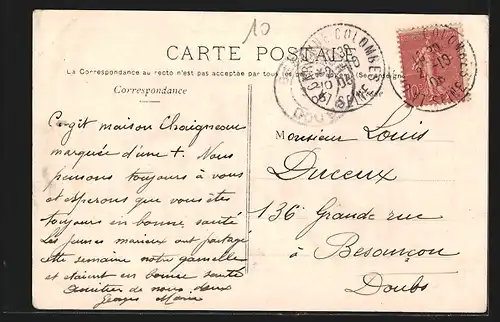 10
CARTE POSTALE
La Correspondance au recto n'est pas acceptée par tous les
Correspondance
maison Chaigneau
marquée d'une +. Nous
pensons toujours à vous
et espérons que vous êtes
toujours en bonne santé
Les jeunes mariés ont partagé
cette semaine notre gamelle
et étaient en bonne santé
Amitiés de nous deux
Georges Marie
Monsieur Louis
Duceux
136 Grande rue
à Besançon
Doubs
GARENNE COLOMBES
SEINE
COLOMBES
SEINE
10